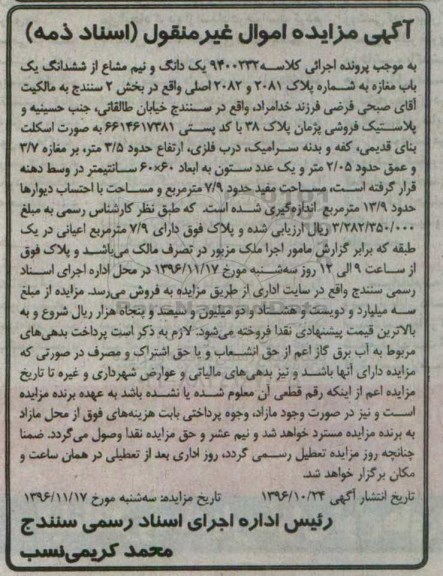 آگهی مزایده اموال غیرمنقول (اسناد ذمه)
به موجب پرونده اجرائی کلاسه ۹۴۰۰۲۳۲ یک دانگ و نیم مشاع از ششدانگ یک
باب مغازه به شماره پلاک ۲۰۸۱ و ۲۰۸۲ اصلی واقع در بخش ۲ سنندج به مالکیت
آقای صبحی فرضی فرزند خدامراد، واقع در سنندج خیابان طالقانی، جنب حسینیه و
پلاستیک فروشی پژمان پلاک ۳۸ با کد پستی ۶۶۱۴۶۱۷۳۸۱ به صورت اسکلت
بنای قدیمی، کفه و بدنه سرامیک، درب فلزی، ارتفاع حدود ۳/۵ متر، بر مغازه ۳/۷
و عمق حدود ۲/۰۵ متر و یک عدد ستون به ابعاد ۶۰×۶۰ سانتیمتر در وسط دهنه
قرار گرفته است، مساحت مفید حدود ۷/۹ مترمربع و مساحت با احتساب دیوارها
حدود ۱۳/۹ مترمربع اندازه‌گیری شده است. که طبق نظر کارشناس رسمی به مبلغ
۳/۲۸۲/۳۵۰/۰۰۰ ریال ارزیابی شده و پلاک فوق دارای ۷/۹ مترمربع اعیانی در یک
طبقه که برابر گزارش مامور اجرا ملک مزبور در تصرف مالک می‌باشد و پلاک فوق
از ساعت ۹ الی ۱۲ روز سه‌شنبه مورخ ۱۳۹۶/۱۱/۱۷ در محل اداره اجرای اسناد
رسمی سنندج واقع در سایت اداری از طریق مزایده به فروش می‌رسد. مزایده از مبلغ
سه میلیارد و دویست و هشتاد و دو میلیون و سیصد و پنجاه هزار ریال شروع و به
بالاترین قیمت پیشنهادی نقدا فروخته می‌شود. لازم به ذکر است پرداخت بدهی‌های
مربوط به آب برق گاز اعم از حق انشعاب و یا حق اشتراک و مصرف در صورتی که
مزایده دارای آنها باشد و نیز بدهی‌های مالیاتی و عوارض شهرداری و غیره تا تاریخ
مزایده اعم از اینکه رقم قطعی آن معلوم شده یا نشده باشد به عهده برنده مزایده
است و نیز در صورت وجود مازاد، وجوه پرداختی بابت هزینه‌های فوق از محل مازاد
به برنده مزایده مسترد خواهد شد و نیم عشر و حق مزایده نقدا وصول می‌گردد. ضمنا
چنانچه روز مزایده تعطیل رسمی گردد، روز اداری بعد از تعطیلی در همان ساعت و
مکان برگزار خواهد شد.
تاریخ انتشار آگهی ۱۳۹۶/۱۰/۲۴ تاریخ مزایده: سه‌شنبه مورخ ۱۳۹۶/۱۱/۱۷
رئیس اداره اجرای اسناد رسمی سنندج
محمد کریمی‌نسب